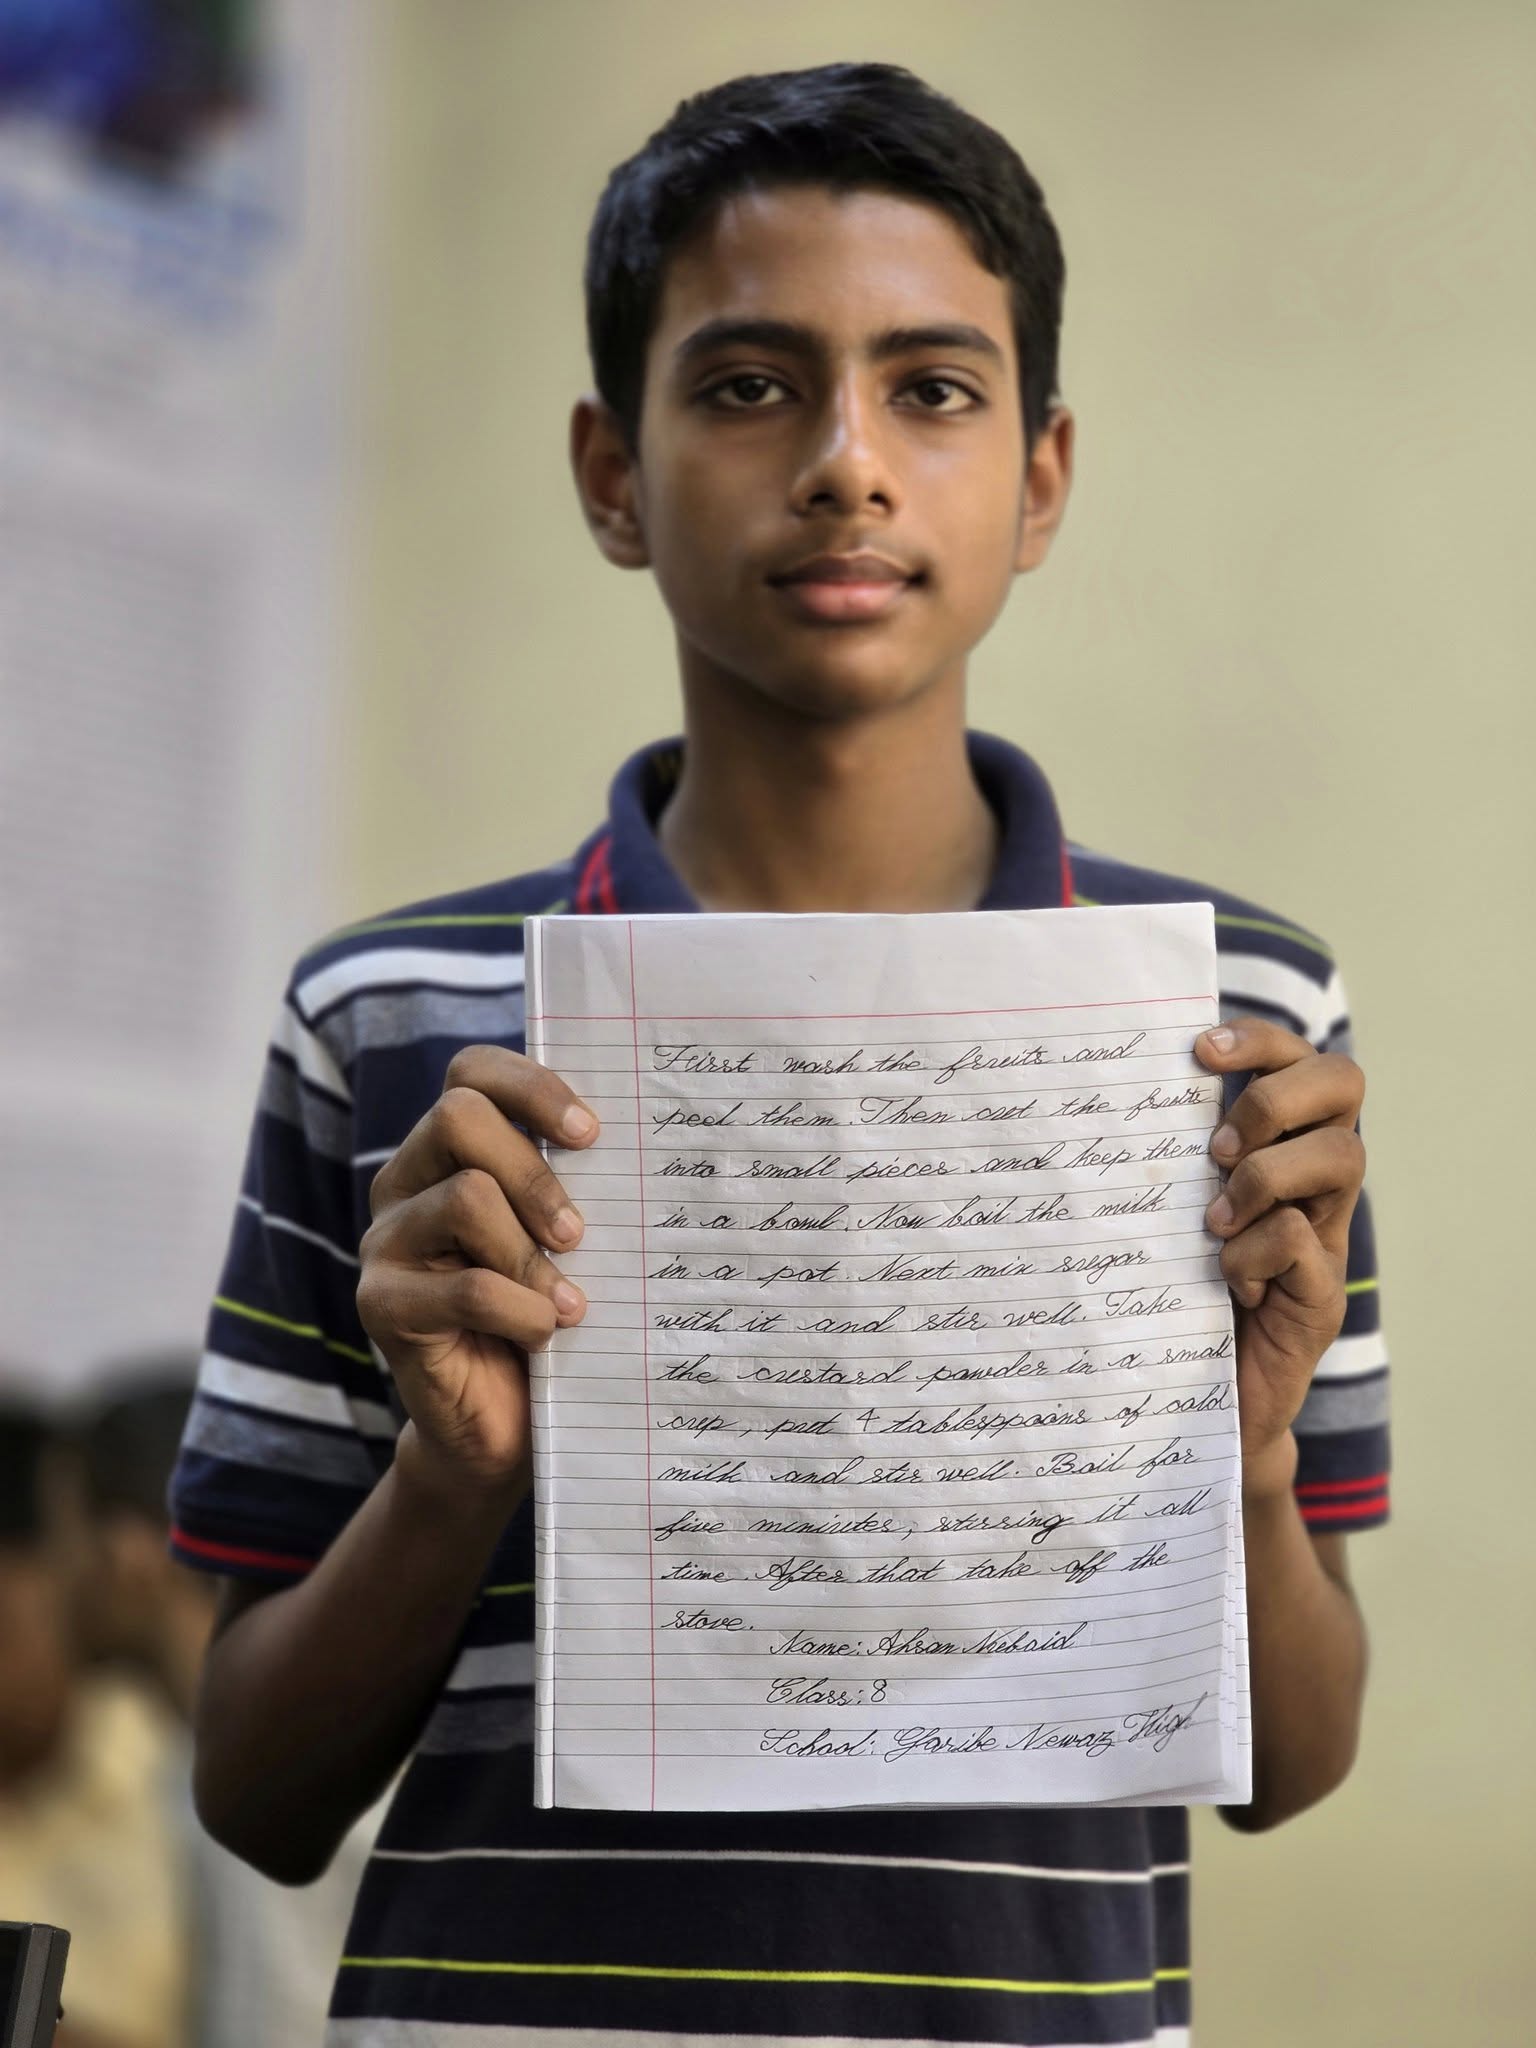 First wash the fruits and
peel them. Then cut the fruits
into small pieces and keep them
in a bowl. Now boil the milk
in a pot. Next mix sugar
with it and stir well. Take
the custard powder in a small
cup, put 4 tablesppoons of cold
milk and stir well. Boil for
five miniutes, stirring it all
time. After that take off the
stove.
Name: Ahsan Nubaid
Class: 8
School: Garibe Newaz High